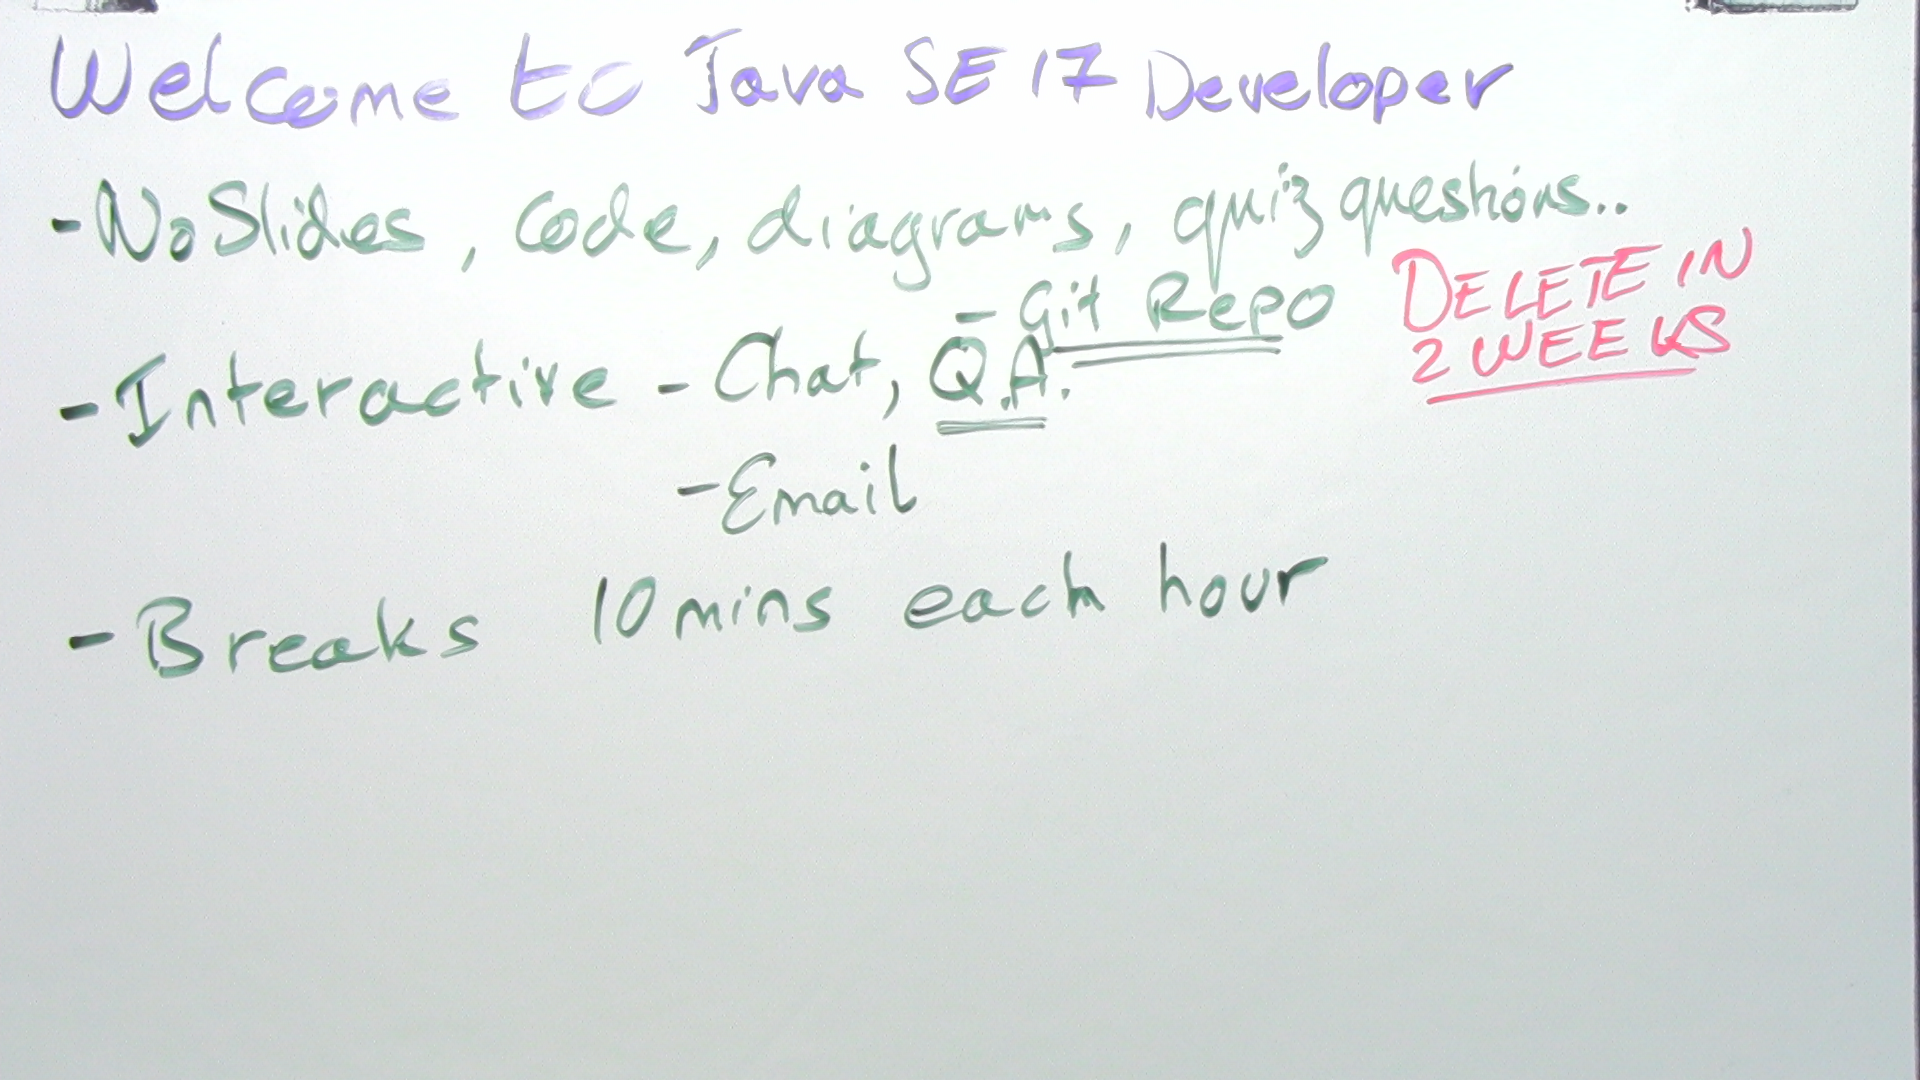 Welcome to Java SE 17 Developer
- No Slides, code, diagrams, quiz questions..
- Git Repo
DELETE IN
2 WEEKS
- Interactive - Chat, Q.A.
- Email
- Breaks 10 mins each hour